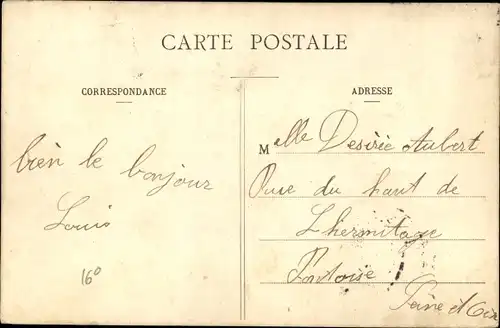 CARTE POSTALE
CORRESPONDANCE
bien le bonjour
Louis
16º
ADRESSE
Melle Desirée Aubert
Rue du haut de
L'hermitage
Pontoise
Seine et Oise